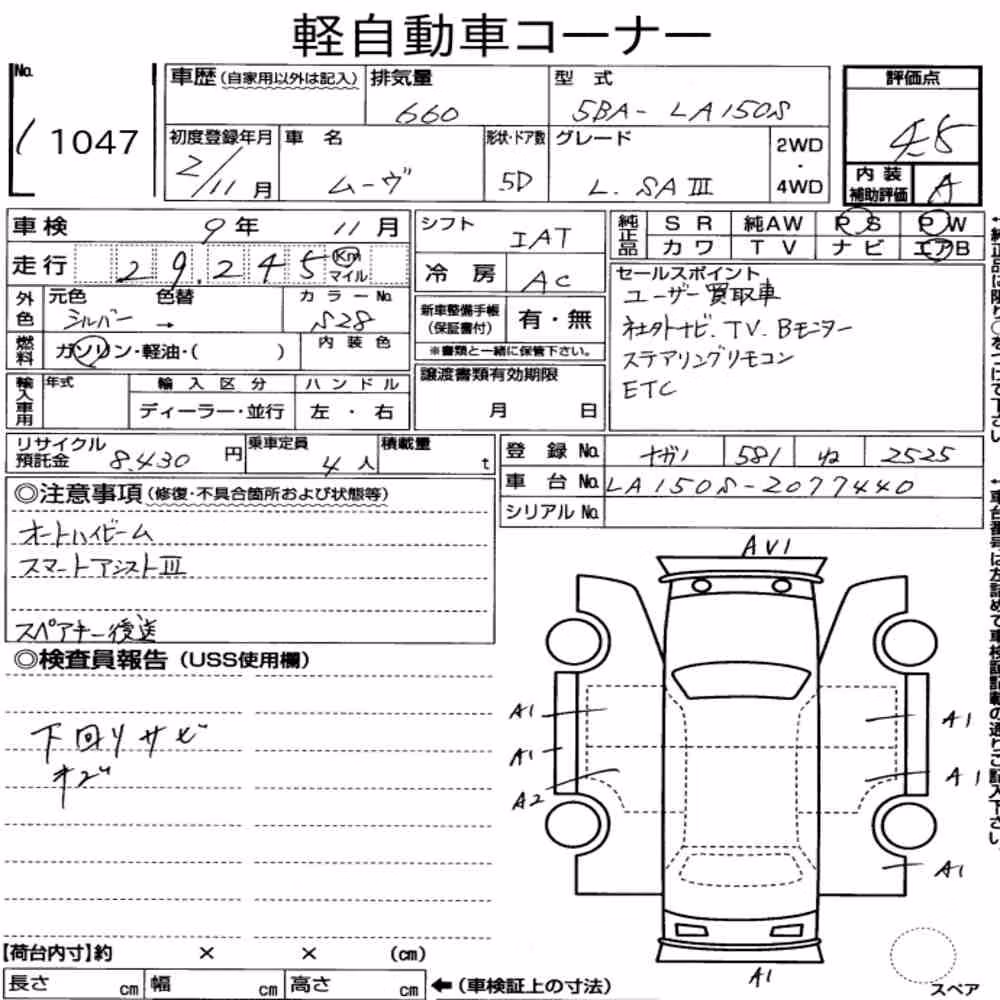 軽自動車コーナー
No. 1047
車歴(自家用以外は記入) 排気量 660 型式 5BA- LA150S
評価点 4.5
初度登録年月 2/11月 車名 ムーヴ 形状・ドア数 5D グレード L. SAⅢ 2WD・4WD
内装補助評価 A
車検 9年 11月
シフト IAT
純正品 SR 純AW PS PW
カワ TV ナビ エアB
走行 29,245 Km マイル
冷房 AC
外色 元色 シルバー → 色替 カラーNo. S28
新車整備手帳(保証書付) 有・無
※書類と一緒に保管下さい。
セールスポイント
ユーザー買取車
社外ナビ.TV.Bモニター
ステアリングリモコン
ETC
燃料 ガソリン・軽油・( ) 内装色
輸入車用 年式 輸入区分 ハンドル
ディーラー・並行 左・右
譲渡書類有効期限
月 日
リサイクル預託金 8,430円 乗車定員 4人 積載量 t
登録No. ナガノ 581 ね 2525
車台No. LA150S-2077440
シリアルNo.
◎注意事項(修復・不具合箇所および状態等)
オートハイビーム
スマートアシストⅢ
スペアキー後送
◎検査員報告(USS使用欄)
下回りサビ
キズ
AV1
A1
A1
A2
A1
A1
A1
A1
スペア
【荷台内寸】約 × × (cm)
長さ cm 幅 cm 高さ cm ←(車検証上の寸法)